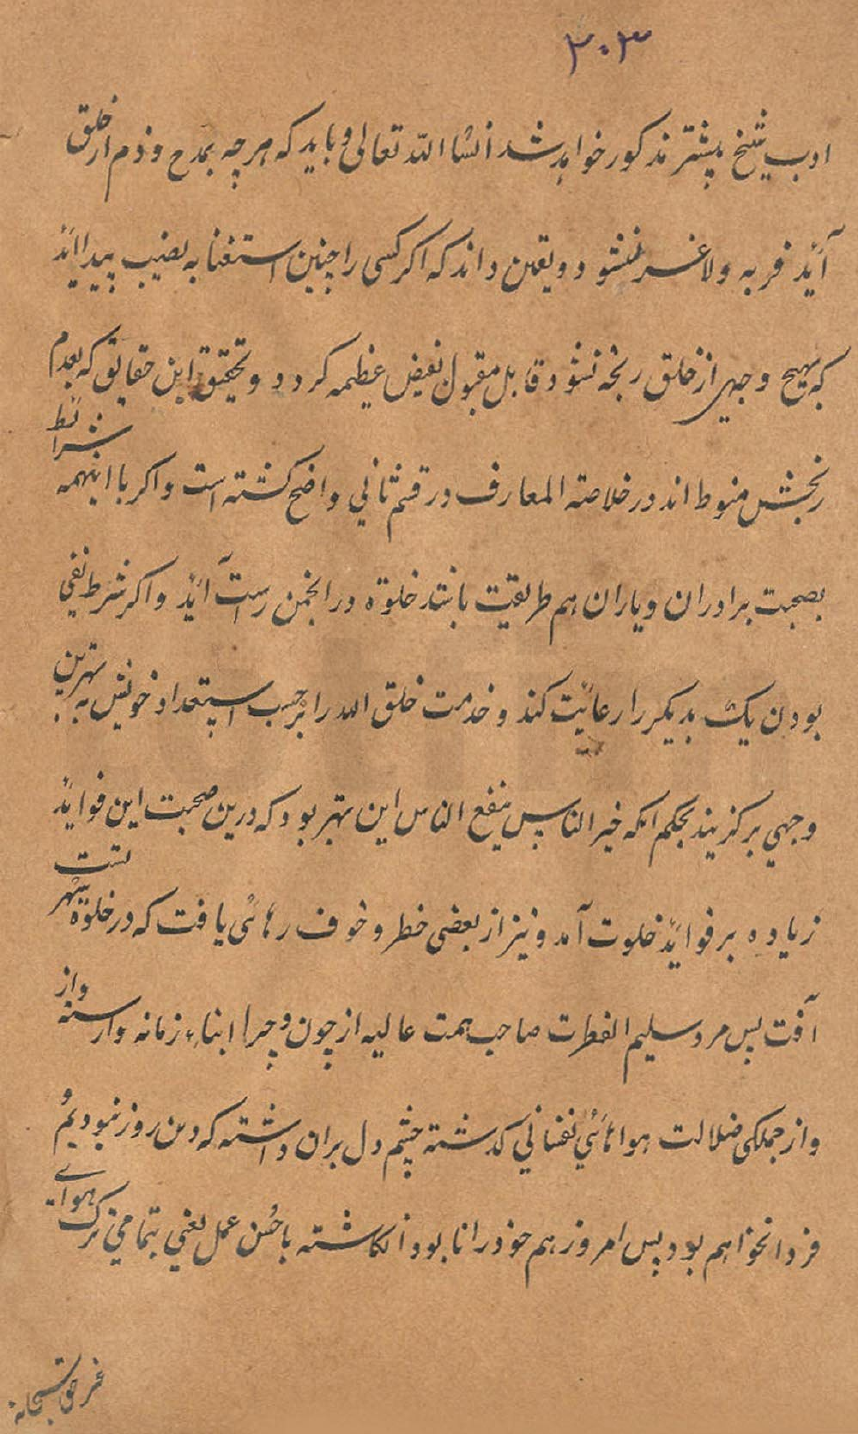 ۳۰۳
ادب شیخ پیشتر مذکور خواهد شد انشا الله تعالی و باید که هرچه بمدح و ذم از خلق
آید فربه و لاغر نشود و یقین داند که اگر کسی را چنین استغنا به نصیب پیدا آید
که بهیچ وجهی از خلق رنجه نشود قابل مقبول نعیض عظیمه کردد و تحقیق این حقایق که بعدم
رنجش منوط اند در خلاصته المعارف در قسم ثانی واضح کشته است و اکر با اینهمه شرائط
بصحبت برادران و یاران هم طریقیت باشد خلوة در انجمن راست آید و اکر شرط نفی
بودن یک بدیکر را رعائیت کند و خدمت خلق الله را برحسب استعداد خویش به بهترین
وجهی برکزیند بحکم انکه خیر الناس ینفع الناس این بهتر بود که درین صحبت این فوائد
زیاده بر فوائد خلوت آمد و نیز از بعضی خطر و خوف رهائی یافت که در خلوة بیشتر است
آفت پس مرد سلیم الفطرت صاحب همت عالیه از چون و چرا ابناء زمانه وارسته و از
و از جملکی ضلالت هواهائی نفسانی کذشته چشم دل بران داشته که دی روز نبودیم و
فردا نخواهم بود پس امروز هم خود را نابود انکاشته با حسن عمل یعنی بتمامی ترک هوای
غیر حق سبحانه